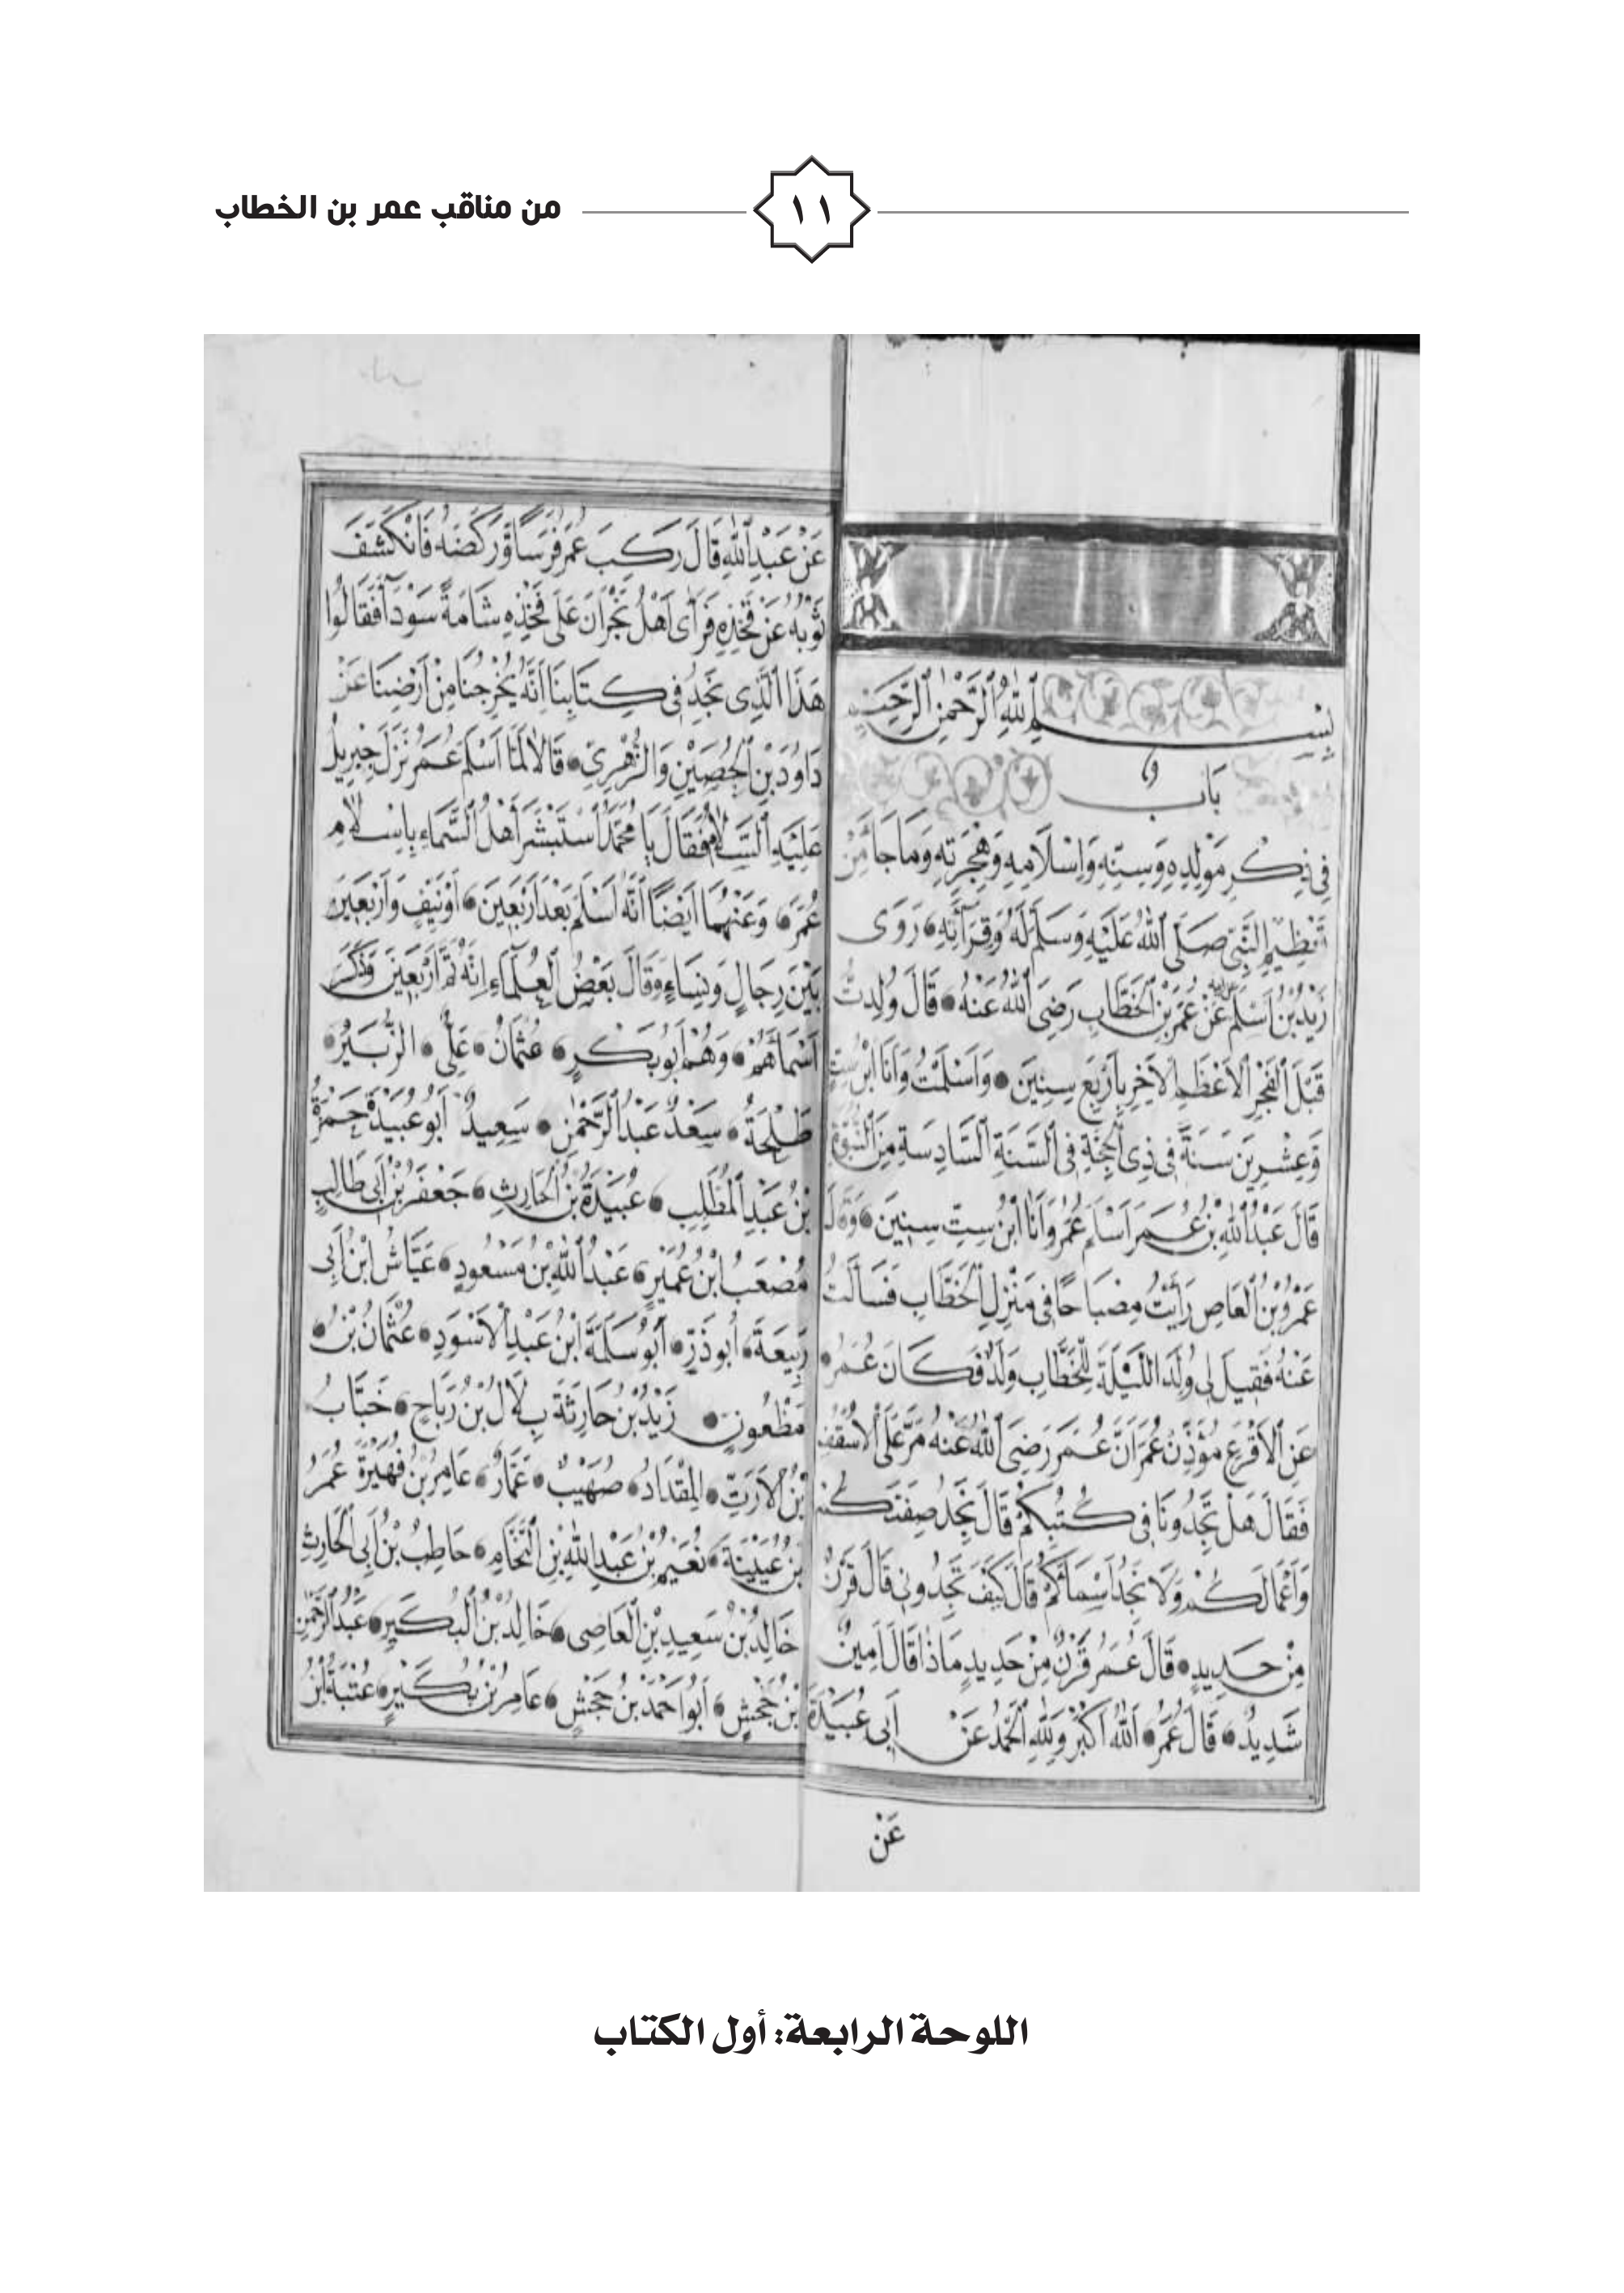 من مناقب عمر بن الخطاب
١١
بِسْمِ اللهِ الرَّحْمٰنِ الرَّحِيمِ
بَاب
فِي ذِكْرِ مَوْلِدِهِ وَسِنِّهِ وَاِسْلَامِهِ وَهِجْرَتِهِ وَمَا جَا مِنْ
تَعْظِيمِ النَّبِيِّ صَلَّى اللهُ عَلَيْهِ وَسَلَّمَ لَهُ وَقِرَآتِهِ رَوَى
زَيْدُ بْنُ اَسْلَمَ عَنْ عُمَرَ بْنِ الْخَطَّابِ رَضِيَ اللهُ عَنْهُ قَالَ وُلِدتُ
قَبْلَ الْفَجْرِ الْاَعْظَمِ الْاَخِرِ بِاَرْبَعِ سِنِينَ وَاَسْلَمْتُ وَاَنَا ابْنُ سِتٍّ
وَعِشْرِينَ سَنَةً فِي ذِي الْحِجَّةِ فِي السَّنَةِ السَّادِسَةِ مِنَ النُّبُوَّةِ
قَالَ عَبْدُ اللهِ بْنُ عُمَرَ اَسْلَمَ عُمَرُ وَاَنَا ابْنُ سِتِّ سِنِينَ وَقَالَ
عَمْرُو بْنُ الْعَاصِ رَاَيْتُ مِصْبَاحًا فِي مَنْزِلِ الْخَطَّابِ فَسَاَلْتُ
عَنْهُ فَقِيلَ لِي وُلِدَ اللَّيْلَةَ لِلْخَطَّابِ وَلَدٌ فَكَانَ عُمَرُ
عَنِ الْاَقْرَعِ مُؤَذِّنِ عُمَرَ اَنَّ عُمَرَ رَضِيَ اللهُ عَنْهُ مَرَّ عَلَى الْاُسْقُفِ
فَقَالَ هَلْ تَجِدُونَا فِي كُتُبِكُمْ قَالَ نَجِدُ صِفَتَكُمْ
وَاَعْمَالَكُمْ وَلَا نَجِدُ اَسْمَآئَكُمْ قَالَ كَيْفَ تَجِدُونِي قَالَ قَرْنٌ
مِنْ حَدِيدٍ قَالَ عُمَرُ قَرْنٌ مِنْ حَدِيدٍ مَاذَا قَالَ اَمِينٌ
شَدِيدٌ قَالَ عُمَرُ اللهُ اَكْبَرُ وَلِلهِ الْحَمْدُ عَنْ اَبِي عُبَيْدَةَ
عَنْ
عَنْ عَبْدِ اللهِ قَالَ رَكِبَ عُمَرُ فَرَسًا وَرَكَضَهُ فَانْكَشَفَ
ثَوْبُهُ عَنْ فَخِذِهِ فَرَاَى اَهْلُ نَجْرَانَ عَلَى فَخِذِهِ شَامَةً سَوْدَآ فَقَالُوا
هَذَا الَّذِي نَجِدُ فِي كِتَابِنَا اِنَّهُ يُخْرِجُنَا مِنْ اَرْضِنَا عَنْ
دَاوُدَ بْنِ الْحُصَيْنِ وَالزُّهْرِيِّ قَالَا لَمَّا اَسْلَمَ عُمَرُ نَزَلَ جِبْرِيلُ
عَلَيْهِ السَّلَامُ فَقَالَ يَا مُحَمَّدُ اسْتَبْشَرَ اَهْلُ السَّمَاءِ بِاِسْلَامِ
عُمَرَ وَعَنْهُمَا اَيْضًا اَنَّهُ اَسْلَمَ بَعْدَ اَرْبَعِينَ اَوْ نَيِّفٍ وَاَرْبَعِينَ
بَيْنَ رِجَالٍ وَنِسَاءٍ وَقَالَ بَعْضُ الْعُلَمَاءِ اِنَّهُ تَمَّ اَرْبَعِينَ وَذَكَرَ
اَسْمَآئَهُمْ وَهُمْ اَبُو بَكْرٍ عُثْمَانُ عَلِيٌّ الزُّبَيْرُ
طَلْحَةُ سَعْدٌ عَبْدُ الرَّحْمٰنِ سَعِيدٌ اَبُو عُبَيْدَةَ حَمْزَةُ
بْنُ عَبْدِ الْمُطَّلِبِ عُبَيْدَةُ بْنُ الْحَارِثِ جَعْفَرُ بْنُ اَبِي طَالِبٍ
مُصْعَبُ ابْنُ عُمَيْرٍ عَبْدُ اللهِ بْنُ مَسْعُودٍ عَيَّاشُ ابْنُ اَبِي
رَبِيعَةَ اَبُو ذَرٍّ اَبُو سَلَمَةَ ابْنُ عَبْدِ الْاَسْوَدِ عُثْمَانُ بْنُ
مَظْعُونٍ زَيْدُ بْنُ حَارِثَةَ بِلَالُ بْنُ رَبَاحٍ خَبَّابُ
بْنُ الْاَرَتِّ الْمِقْدَادُ صُهَيْبٌ عَمَّارٌ عَامِرُ بْنُ فُهَيْرَةَ عُمَرُ
بْنُ عُيَيْنَةَ نُعَيْمُ بْنُ عَبْدِ اللهِ بْنِ النَّحَّامِ حَاطِبُ بْنُ اَبِي الْحَارِثِ
خَالِدُ بْنُ سَعِيدِ بْنِ الْعَاصِي خَالِدُ بْنُ الْبُكَيْرِ عَبْدُ الرَّحْمٰنِ
بْنُ جَحْشٍ اَبُو اَحْمَدَ بْنُ جَحْشٍ عَامِرُ بْنُ بُكَيْرٍ عُتْبَةُ ابْنُ
اللوحة الرابعة: أول الكتاب